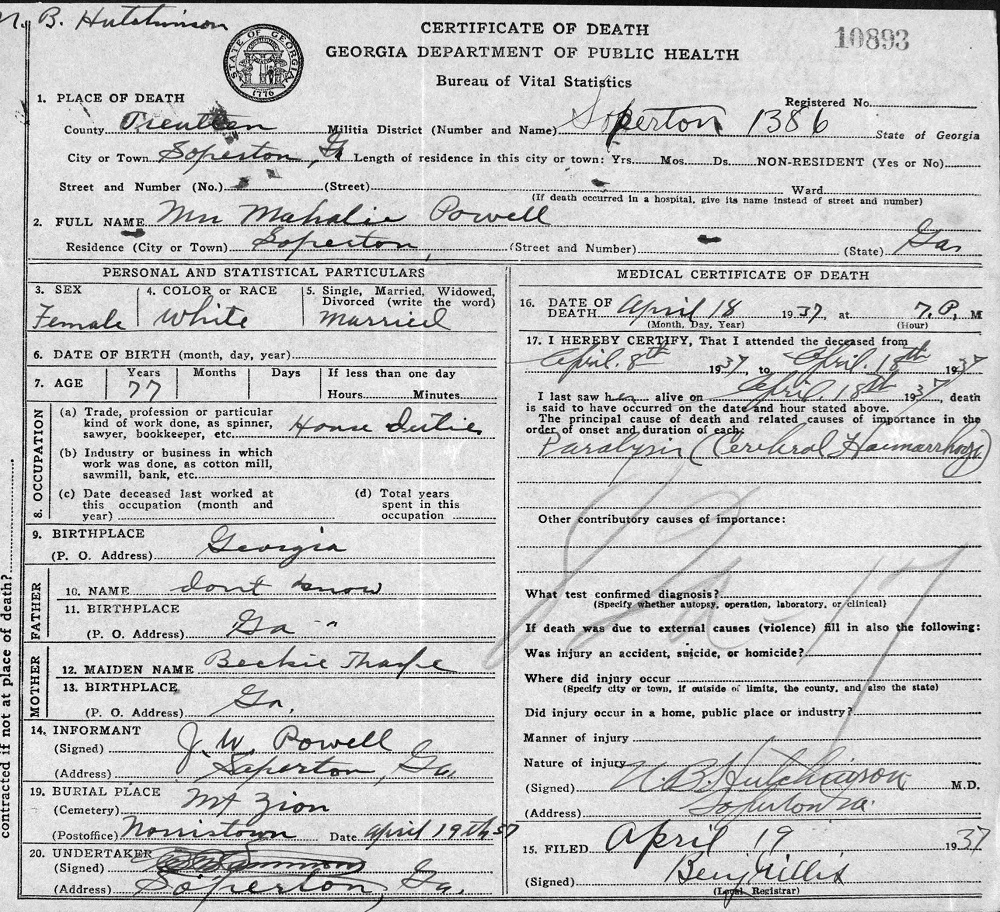 N. B. Hutchinson
CERTIFICATE OF DEATH
GEORGIA DEPARTMENT OF PUBLIC HEALTH
Bureau of Vital Statistics
10893
STATE OF GEORGIA
1776
Registered No.
1. PLACE OF DEATH
County Treutlen Militia District (Number and Name) Soperton 1386 State of Georgia
City or Town Soperton, Ga Length of residence in this city or town: Yrs. Mos. Ds. NON-RESIDENT (Yes or No)
Street and Number (No.) (Street) Ward
(If death occurred in a hospital, give its name instead of street and number)
2. FULL NAME Mrs Mahalie Powell
Residence (City or Town) Soperton, (Street and Number) (State) Ga.
PERSONAL AND STATISTICAL PARTICULARS
3. SEX 4. COLOR or RACE 5. Single, Married, Widowed,
Divorced (write the word)
Female White Married
6. DATE OF BIRTH (month, day, year)
7. AGE Years Months Days If less than one day
77 Hours Minutes
8. OCCUPATION
(a) Trade, profession or particular
kind of work done, as spinner,
sawyer, bookkeeper, etc. House Duties
(b) Industry or business in which
work was done, as cotton mill,
sawmill, bank, etc.
(c) Date deceased last worked at
this occupation (month and
year)
(d) Total years
spent in this
occupation
9. BIRTHPLACE
(P. O. Address) Georgia
FATHER
10. NAME dont know
11. BIRTHPLACE
(P. O. Address) Ga "
MOTHER
12. MAIDEN NAME Beckie Tharpe
13. BIRTHPLACE
(P. O. Address) Ga.
14. INFORMANT
(Signed) J. W. Powell
(Address) Soperton, Ga.
19. BURIAL PLACE
(Cemetery) Mt Zion
(Postoffice) Norristown Date April 19th 37
20. UNDERTAKER
(Signed)
(Address) Soperton, Ga.
contracted if not at place of death?
MEDICAL CERTIFICATE OF DEATH
16. DATE OF
DEATH April 18 1937, at 7. P. M
(Month, Day, Year) (Hour)
17. I HEREBY CERTIFY, That I attended the deceased from
April. 8th 1937, to April. 18th 1937
I last saw her alive on April. 18th 1937, death
is said to have occurred on the date and hour stated above.
The principal cause of death and related causes of importance in the
order of onset and duration of each:
Paralysis (Cerebral Haemarrhage)
Other contributory causes of importance:
What test confirmed diagnosis?
(Specify whether autopsy, operation, laboratory, or clinical)
If death was due to external causes (violence) fill in also the following:
Was injury an accident, suicide, or homicide?
Where did injury occur
(Specify city or town, if outside of limits, the county, and also the state)
Did injury occur in a home, public place or industry?
Manner of injury
Nature of injury
(Signed) N. B. Hutchinson M.D.
(Address) Soperton Ga.
15. FILED April 19 1937
(Signed) Benj Willis
(Local Registrar)